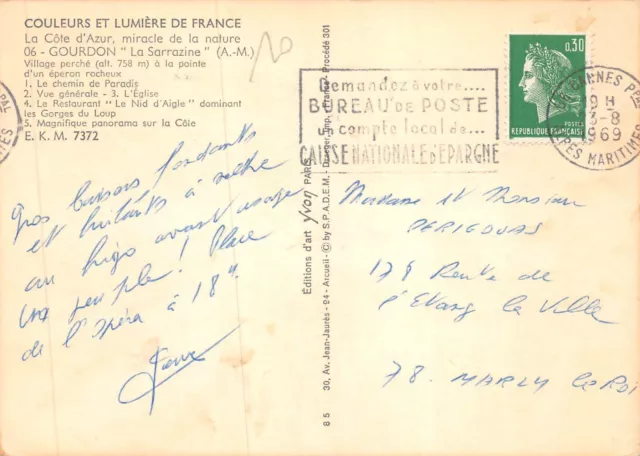 COULEURS ET LUMIÈRE DE FRANCE
La Côte d'Azur, miracle de la nature
06 - GOURDON "La Sarrazine" (A.-M.)
Village perché (alt. 758 m) à la pointe
d'un éperon rocheux
1. Le chemin de Paradis
2. Vue générale - 3. L'Église
4. Le Restaurant "Le Nid d'Aigle" dominant
les Gorges du Loup
5. Magnifique panorama sur la Côte
E. K. M. 7372
Gros baisers fondants
et brûlants à mettre
au frigo avant usage
un peu plus ! Place
de l'Opéra à 18H
Éditions d'art yvon PARIS
30, Av. Jean-Jaurès - 94 - Arcueil - © by S.P.A.D.E.M. - Draeger, Imp. Procédé 301
B 5
Demandez à votre....
BUREAU DE POSTE
un compte local de...
CAISSE NATIONALE D'EPARGNE
0,30
POSTES
REPUBLIQUE FRANÇAISE
CANNES
19 H
3-8
1969
ALPES MARITIMES
Madame et Monsieur
PERIGOUAS
178 Route de
l'Etang la Ville
78. MARLY le Roi